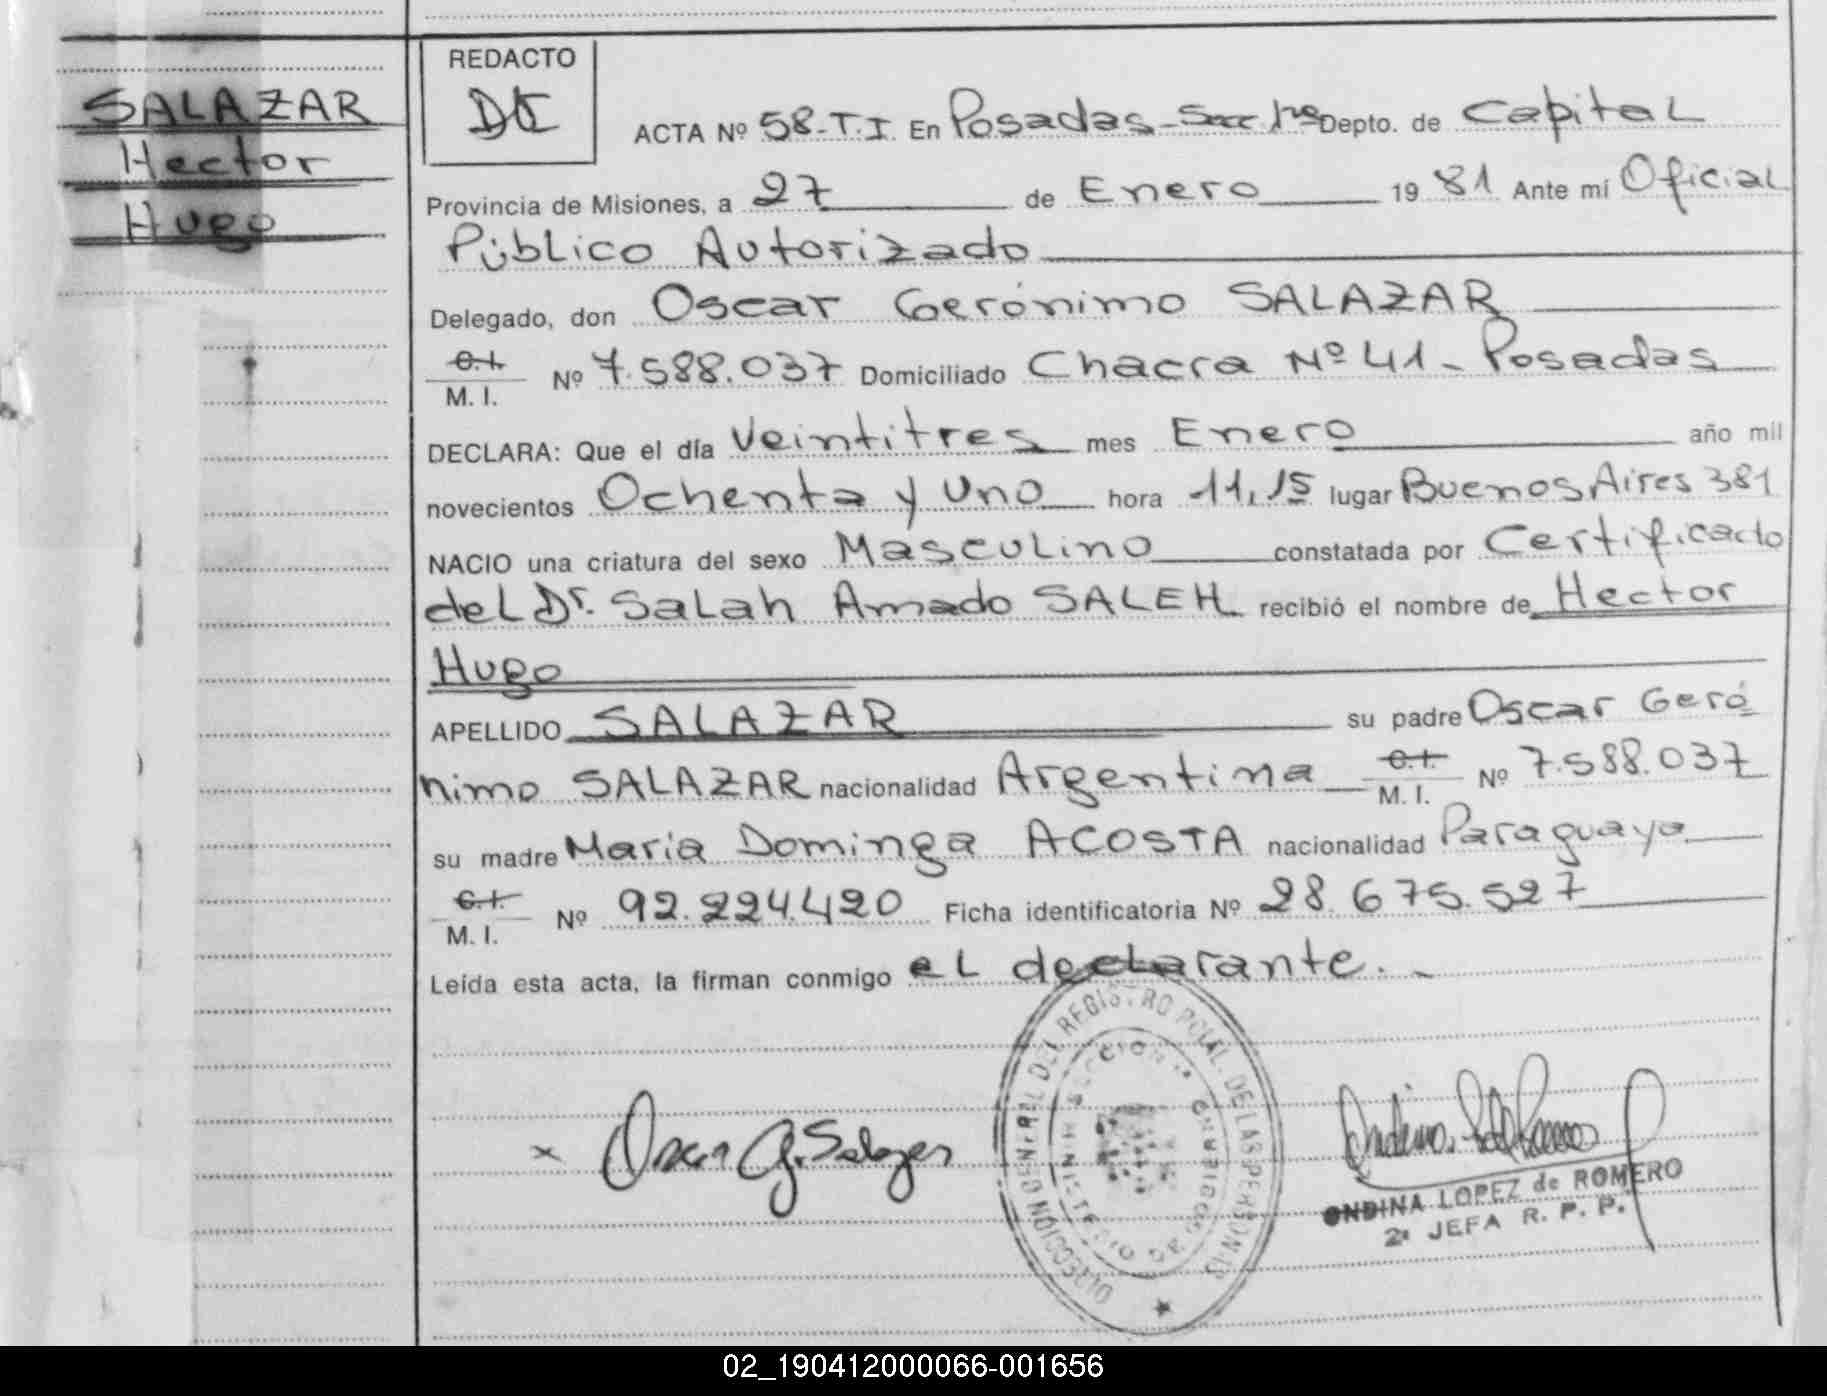 SALAZAR
Hector
Hugo
REDACTO
ACTA Nº 58-T.I. En Posadas-Secc 1ra Depto. de Capital
Provincia de Misiones, a 27 de Enero 19 81 Ante mí Oficial
Público Autorizado
Delegado, don Oscar Gerónimo SALAZAR
C.I.
M. I. Nº 7.588.037 Domiciliado Chacra Nº 41- Posadas
DECLARA: Que el día Veintitres mes Enero año mil
novecientos Ochenta y Uno hora 11,15 lugar Buenos Aires 381
NACIO una criatura del sexo Masculino constatada por Certificado
del Dr. Salah Amado SALEH recibió el nombre de Hector
Hugo
APELLIDO SALAZAR su padre Oscar Geró
nimo SALAZAR nacionalidad Argentina C.I.
M. I. Nº 7.588.037
su madre María Dominga ACOSTA nacionalidad Paraguaya
C.I.
M. I. Nº 92.224.420 Ficha identificatoria Nº 28.675.527
Leída esta acta, la firman conmigo el declarante.-
DIRECCION GENERAL DEL REGISTRO PCIAL. DE LAS PERSONAS
SECCION 1ª
MINISTERIO DE GOBIERNO
x Oscar G. Salazar
ONDINA LOPEZ de ROMERO
2ª JEFA R. P. P.
02_190412000066-001656